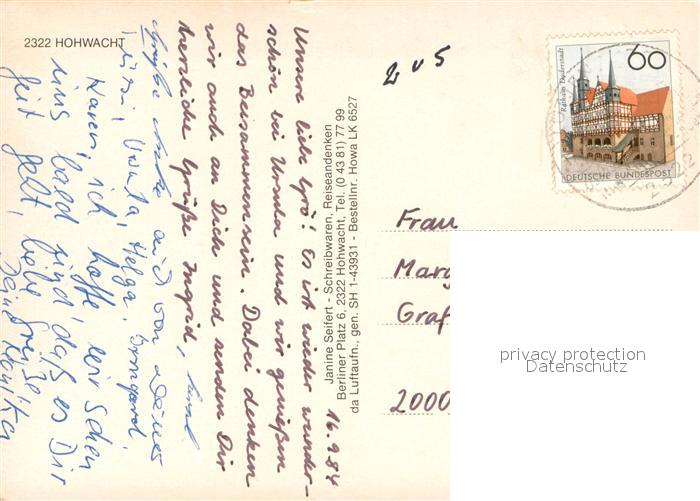 2322 HOHWACHT
16.9.84
Unsere liebe Grö! Es ist wieder wunder-
schön bei Ursula und wir genießen
das Beisammensein. Dabei denken
wir auch an Dich und senden Dir
herzliche Grüße Ingrid,
Grüße auch von Deiner
Ursula, Helga, Irmgard
Karen, ich hoffe wir sehen
uns bald und daß es Dir
gut geht, liebe Grüße
Deine Monika
Janine Seifert - Schreibwaren, Reiseandenken
Berliner Platz 6, 2322 Hohwacht, Tel. (0 43 81) 77 99
da Luftaufn., gen. SH 1-43931 - Bestellnr. Howa LK 6527
2 v 5
60
Rathaus Duderstadt
DEUTSCHE BUNDESPOST
Frau
Marg
Graf
2000
privacy protection
Datenschutz